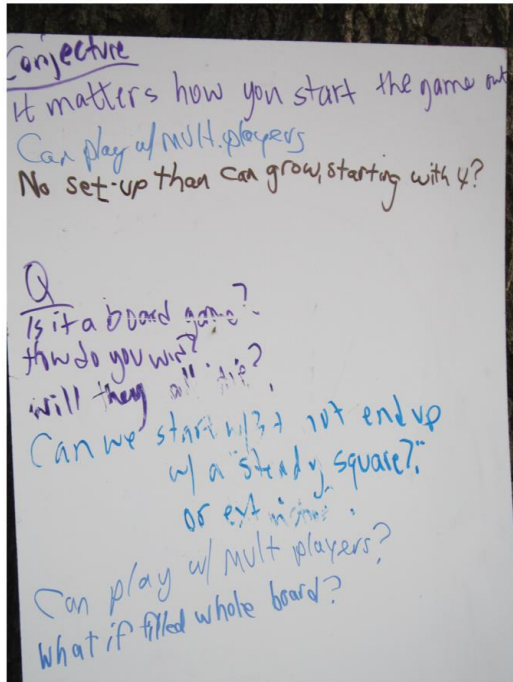 Conjecture
It matters how you start the game out
Can play w/ mult. players
No set-up than can grow, starting with 4?
Q
Is it a board game?
How do you win?
will they all
Can we start w/ 3 + not end up
w/ a "steady square?"
or
Can play w/ mult players?
What if filled whole board?